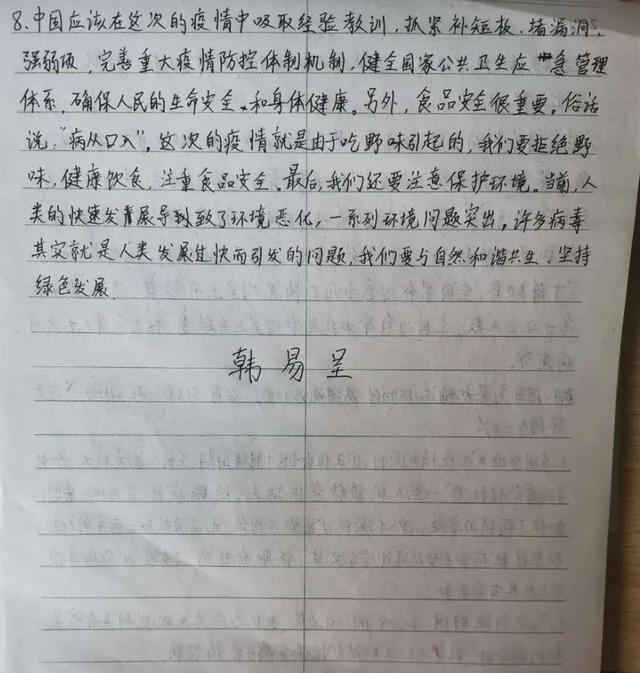 8.中国应该在这次的疫情中吸取经验教训，抓紧补短板，堵漏洞，
强弱项，完善重大疫情防控体制机制，健全国家公共卫生应急管理
体系，确保人民的生命安全和身体健康。另外，食品安全很重要。俗话
说，"病从口入"。这次的疫情就是由于吃野味引起的，我们要拒绝野
味，健康饮食，注重食品安全。最后，我们还要注意保护环境。当前，人
类的快速发展导致了环境恶化，一系列环境问题突出。许多病毒
其实就是人类发展过快而引发的问题，我们要与自然和谐共生、坚持
绿色发展.
韩易呈